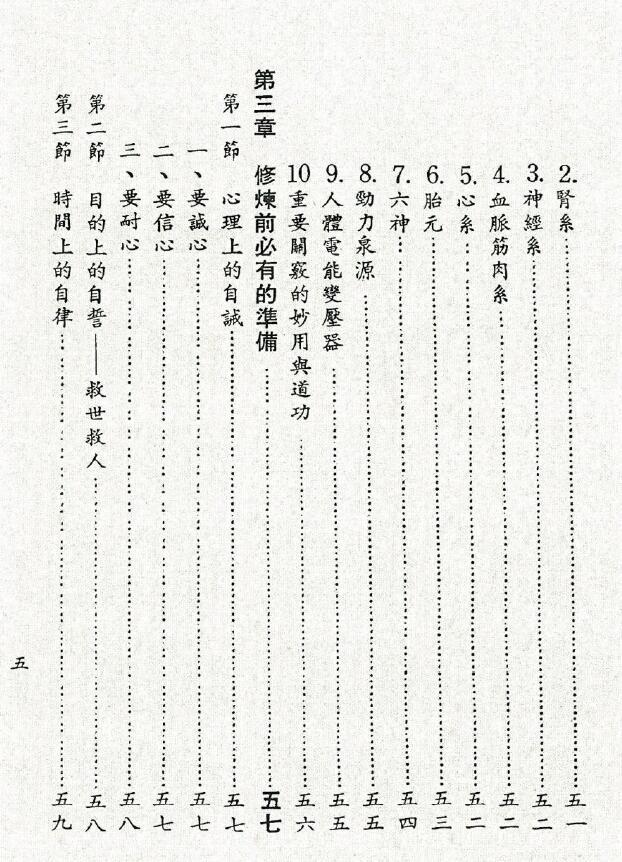 2. 腎系……五一
3. 神經系……五二
4. 血脈筋肉系……五二
5. 心系……五二
6. 胎元……五三
7. 六神……五四
8. 勁力泉源……五五
9. 人體電能變壓器……五五
10 重要關竅的妙用與道功……五六
第三章 修煉前必有的準備……五七
第一節 心理上的自誡……五七
一、要誠心……五七
二、要信心……五七
三、要耐心……五八
第二節 目的上的自誓——救世救人……五八
第三節 時間上的自律……五九
五